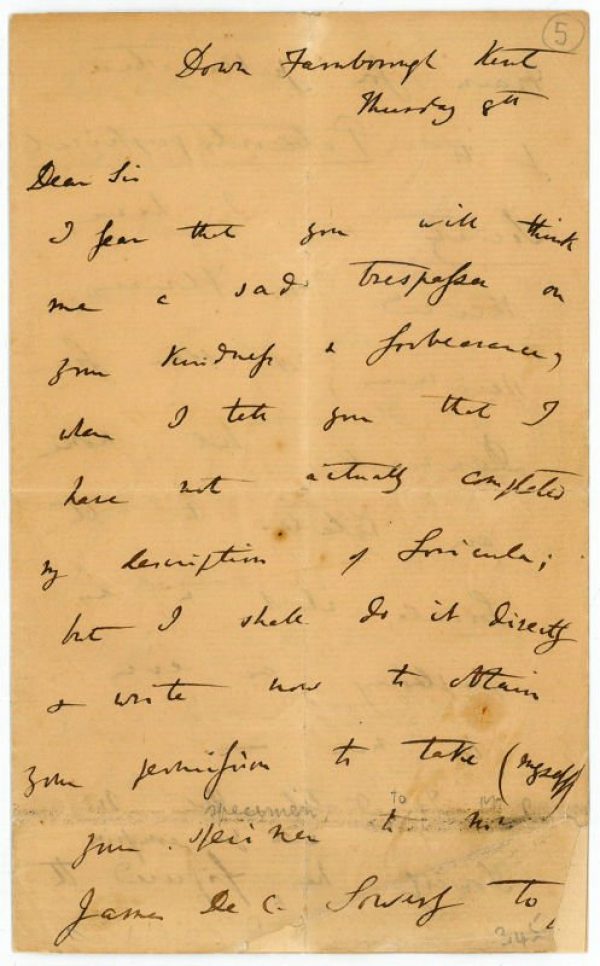 5
Down Farnborough Kent
Thursday 8th
Dear Sir
I fear that you will think
me a sad trespasser on
your kindness & forbearance,
when I tell you that I
have not actually completed
my description of Loricula;
but I shall do it directly
& write now to obtain
your permission to take (myself)
specimen To Mr
your specimen to Mr
James De C. Sowerby to